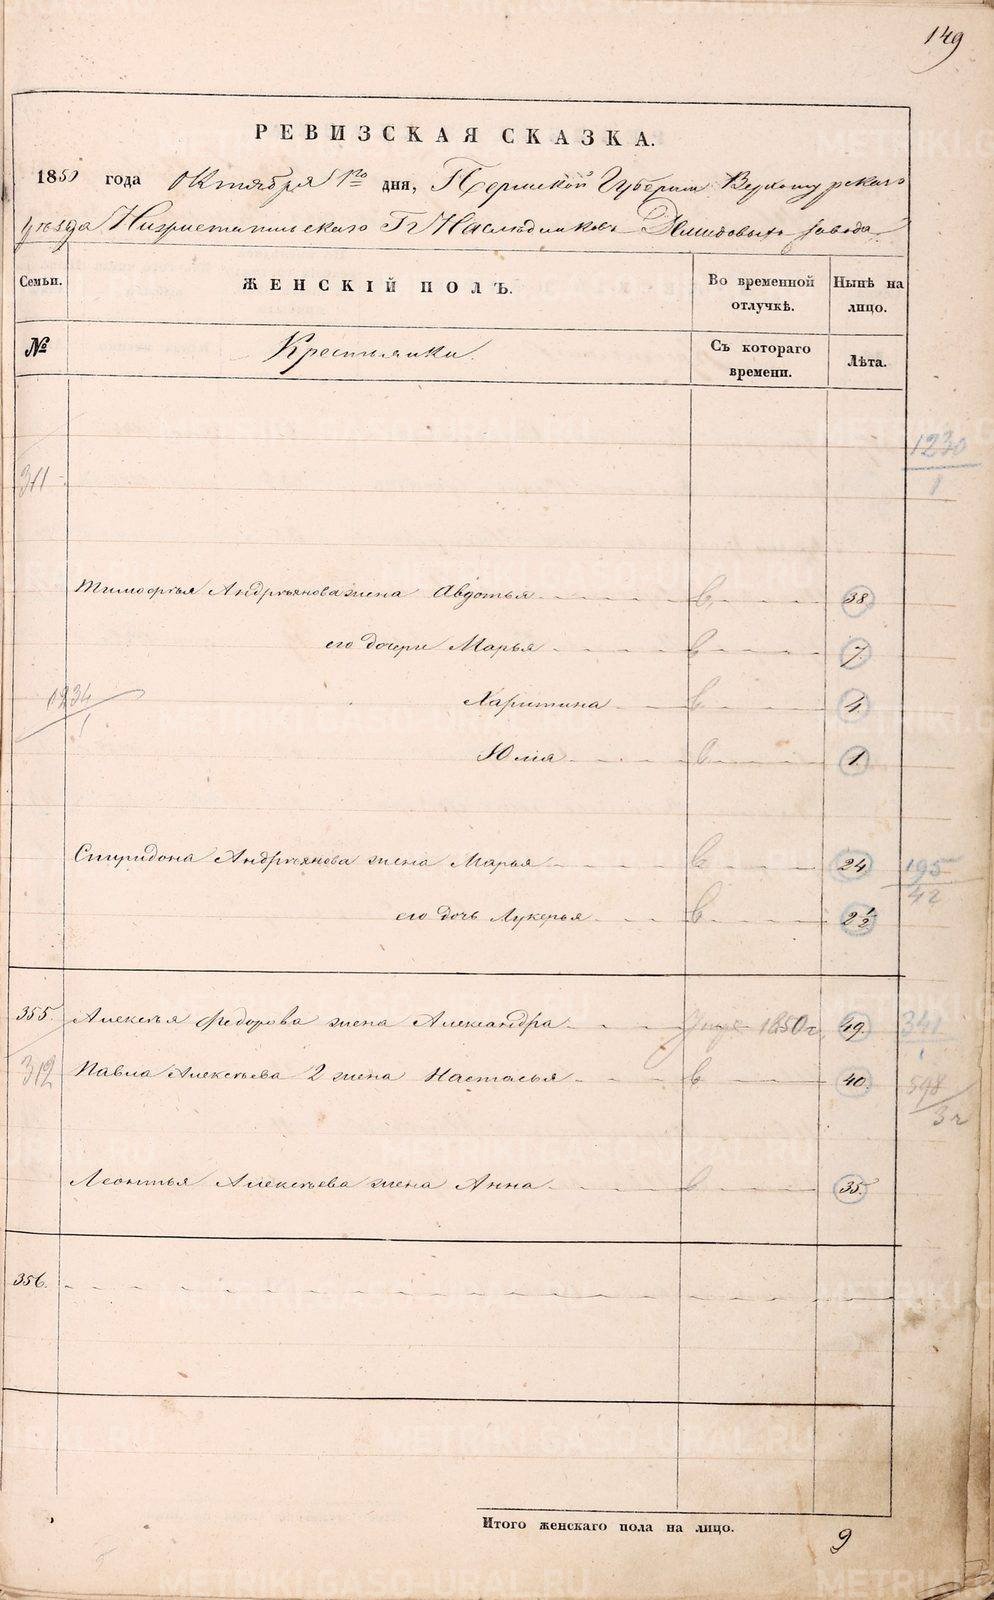 149
РЕВИЗСКАЯ СКАЗКА.
1850 года Октября 1го дня, Пермской Губернии Верхотурскаго
уезда Гг Наследниковъ Демидовыхъ завода
Семьи. ЖЕНСКІЙ ПОЛЪ. Во временной отлучкѣ. Нынѣ на лицо.
№ Крестьянки. Съ котораго времени. Лѣта.
1230
1
311
Тимофѣя Андрѣянова жена Авдотья 38.
его дочери Марья 7.
1234
1
Харитина 4.
Юлія 1.
Спиридона Андрѣянова жена Марья 24.
195
42
его дочь Лукерья 2 1/2
355. Алексѣя Федорова жена Александра 1850 г. 49. 341
1
312 Павла Алексѣева 2 жена Настасья 40. 598
3
Леонтья Алексѣева жена Анна 35.
356.
Итого женскаго пола на лицо. 9
METRIKI.GASO-URAL.RU